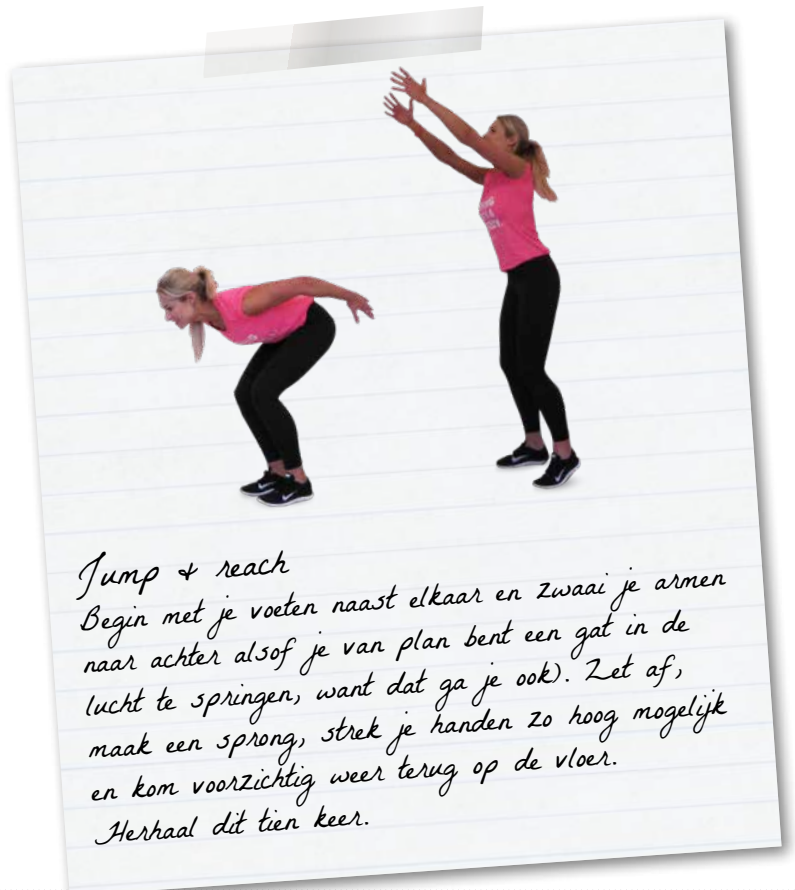 Jump & reach
Begin met je voeten naast elkaar en zwaai je armen
naar achter alsof je van plan bent een gat in de
lucht te springen, want dat ga je ook). Zet af,
maak een sprong, strek je handen zo hoog mogelijk
en kom voorzichtig weer terug op de vloer.
Herhaal dit tien keer.